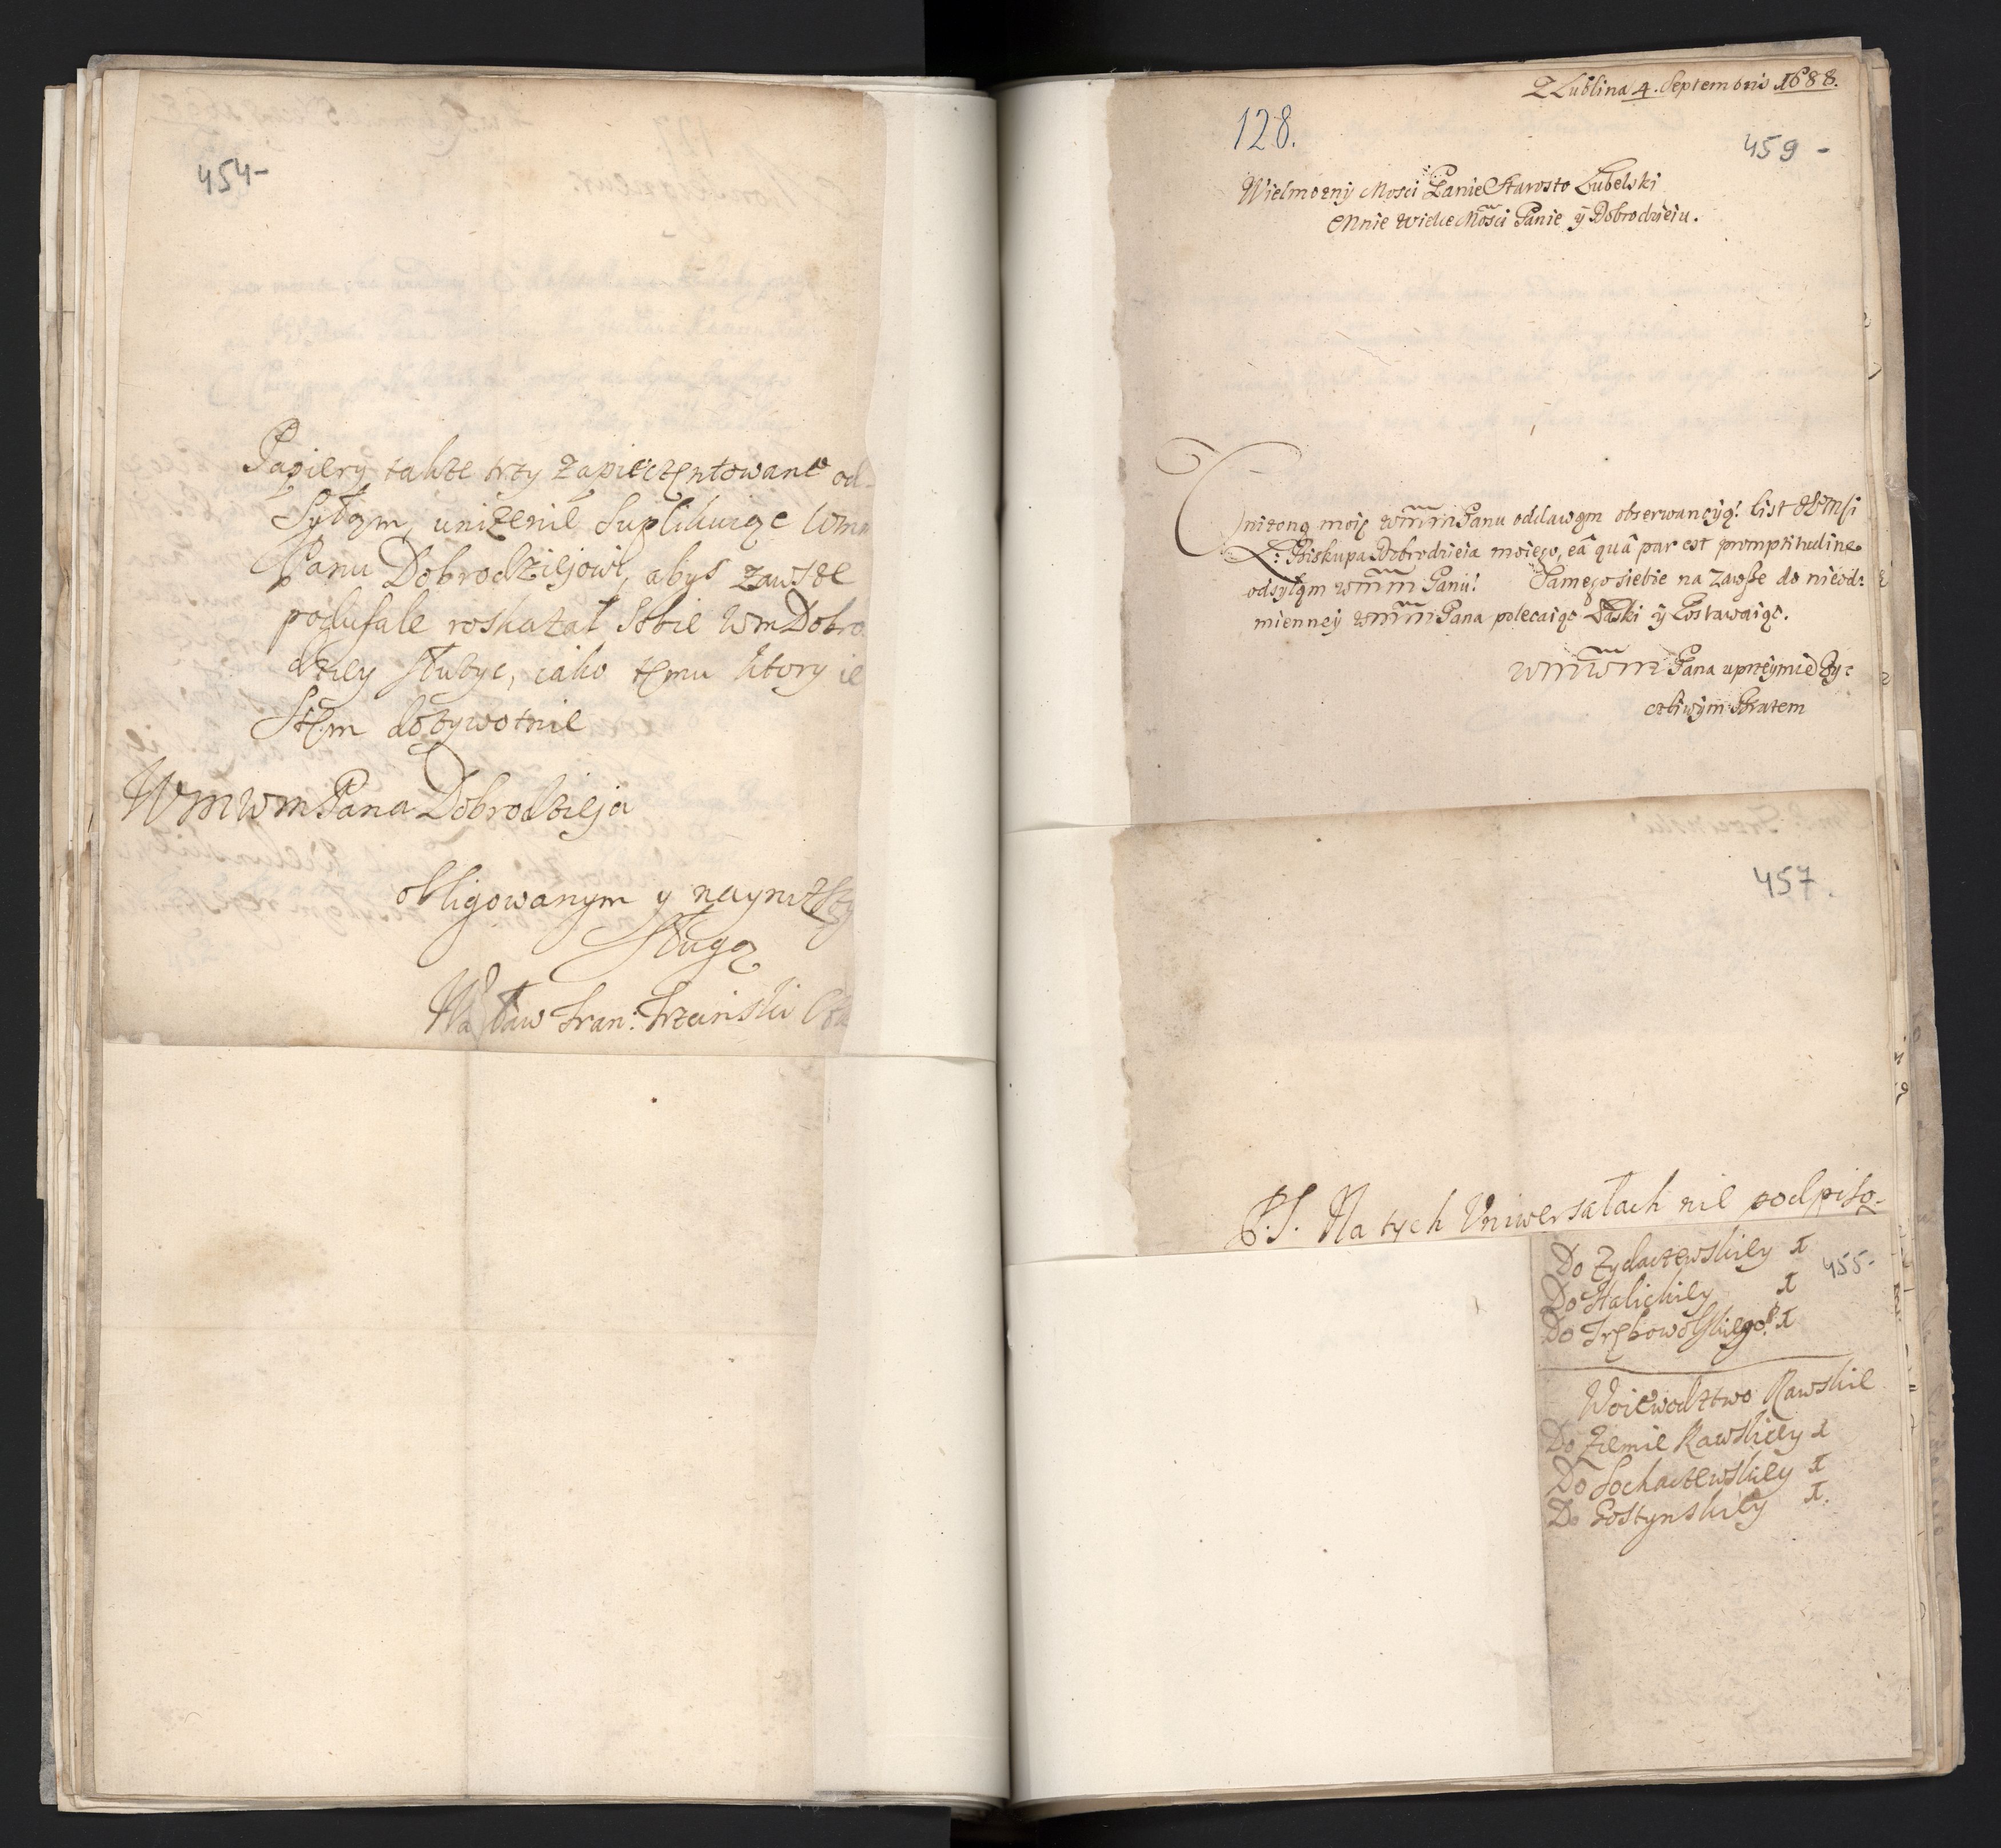 454-
Papiery takze trzy zapieczętowane od-
Syłąm, unizenie Suplikuiąc Wm
Panu Dobrodziejowi, abys zawsze
poufale roskazał Sobie WmDobro
dziey służyc, iako temu ktory ie
Stem dozywotnie
WmWmPana Dobrodzieja
obligowanym y nayniższy
Sługą
Wacław Fran: Trzcinski
Z Lublina 4. Septembris 1688.
128.
459-
Wielmozny Mosci Panie Starosto Lubelski
Mnie wielce Mosci Panie y Dobrodzieiu.
Unizoną moię wmm Panu oddawam obserwancyą. list
Biskupa Dobrodzieia moiego, eâ quâ par est promptitudine
odsyłąm wmm Panu. Samego siebie na zawsze do nieod:
mienney wmm Pana polecaiąc Łaski y Zostawaiąc.
wmwm Pana uprzeymie Zy:
czliwym Bratem
457.
P.S. Na tych Uniwersałach nie podpisa-
455-
Do Zydaczewskiey 1
Do Halickiey 1
Do Trębowolskiego 1
Woiewodztwo Rawskie
Do Ziemie Rawskiey 1
Do Sochaczewskiey 1
Do Gostynskiey 1.